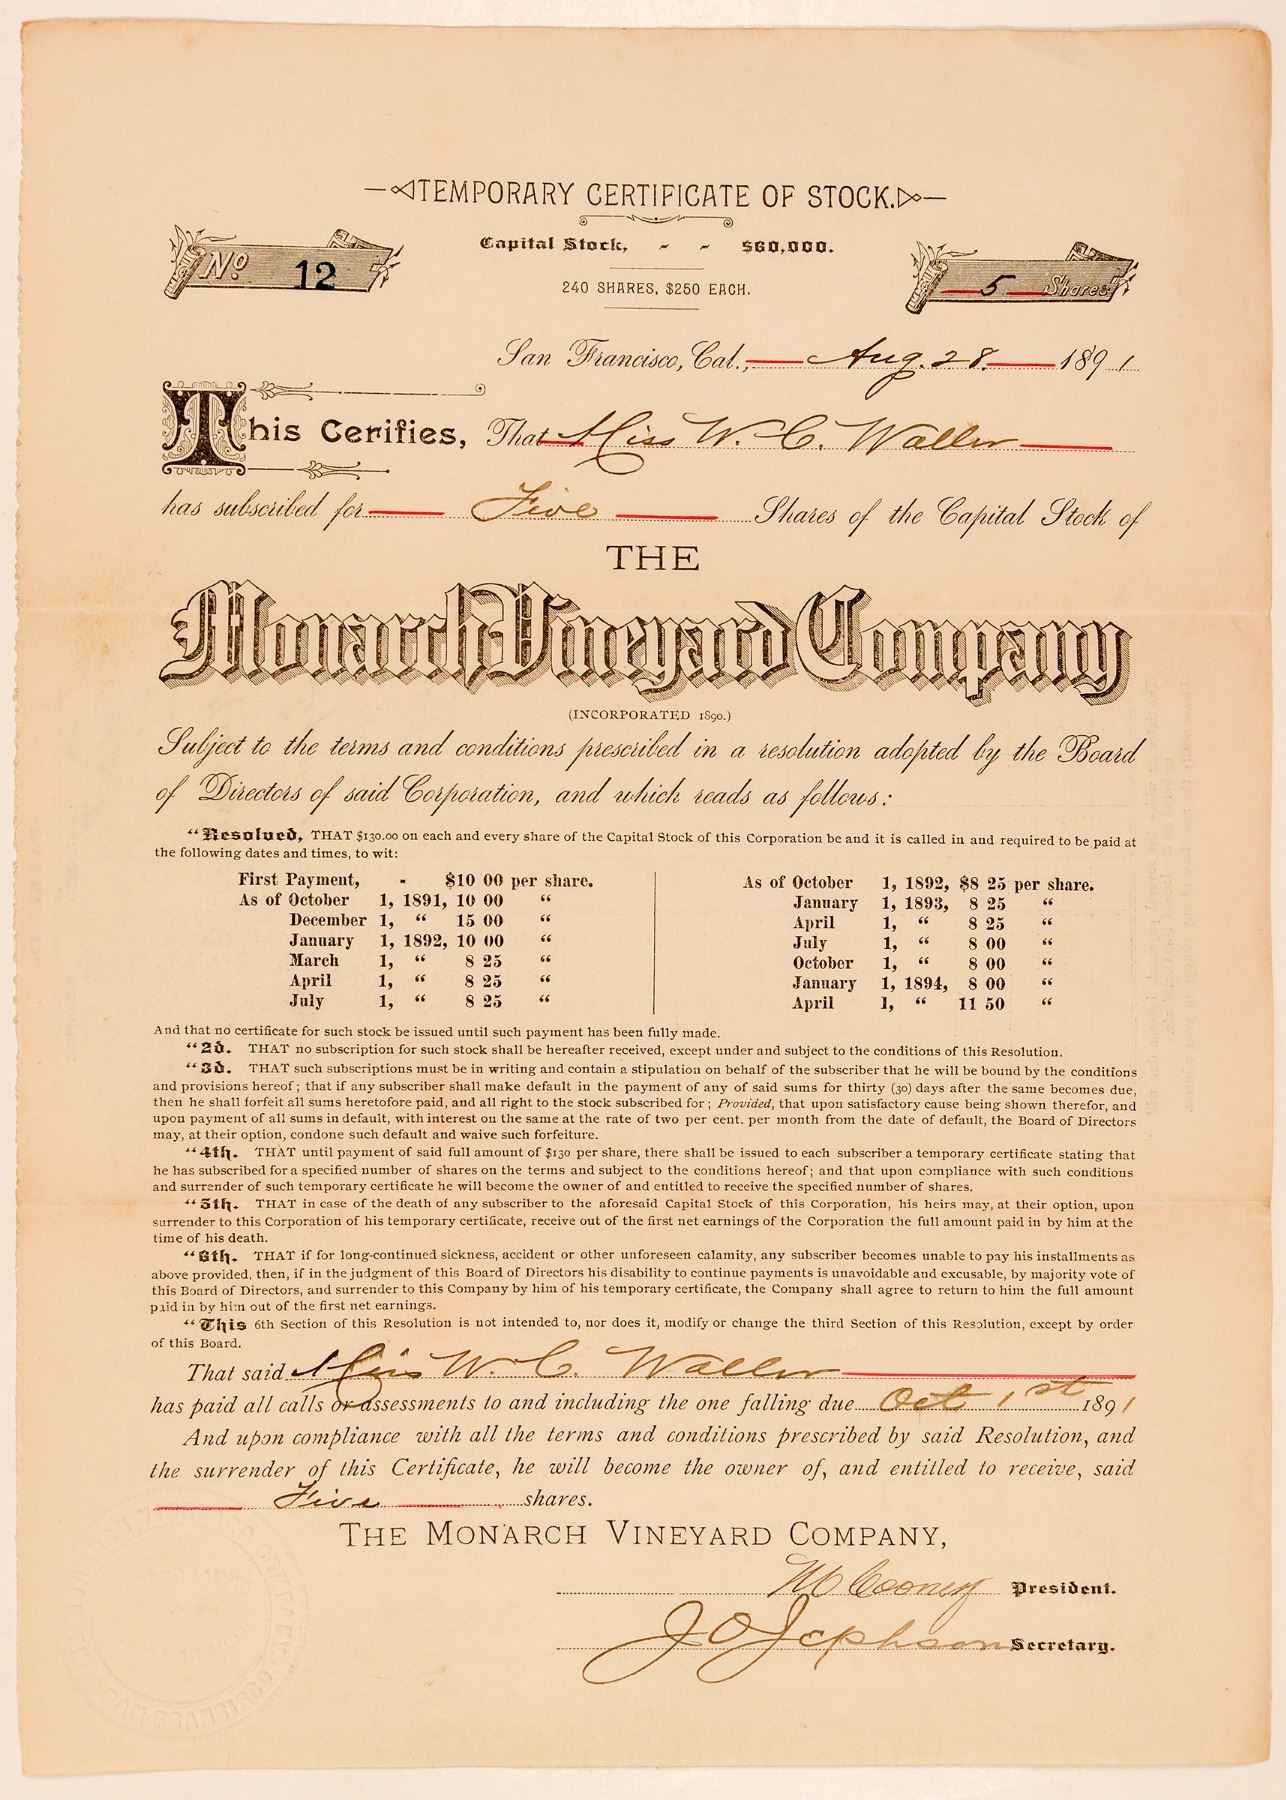 TEMPORARY CERTIFICATE OF STOCK.
Capital Stock, - - $60,000.
No 12
240 SHARES, $250 EACH.
5 Shares
San Francisco, Cal., Aug. 28. 1891
This Cerifies, That Miss W. C. Waller
has subscribed for Five Shares of the Capital Stock of
THE
Monarch Vineyard Company
(INCORPORATED 1890.)
Subject to the terms and conditions prescribed in a resolution adopted by the Board
of Directors of said Corporation, and which reads as follows:
"Resolved, THAT $130.00 on each and every share of the Capital Stock of this Corporation be and it is called in and required to be paid at
the following dates and times, to wit:
First Payment, - $10 00 per share.
As of October 1, 1891, 10 00 "
December 1, " 15 00 "
January 1, 1892, 10 00 "
March 1, " 8 25 "
April 1, " 8 25 "
July 1, " 8 25 "
As of October 1, 1892, $8 25 per share.
January 1, 1893, 8 25 "
April 1, " 8 25 "
July 1, " 8 00 "
October 1, " 8 00 "
January 1, 1894, 8 00 "
April 1, " 11 50 "
And that no certificate for such stock be issued until such payment has been fully made.
"2d. THAT no subscription for such stock shall be hereafter received, except under and subject to the conditions of this Resolution.
"3d. THAT such subscriptions must be in writing and contain a stipulation on behalf of the subscriber that he will be bound by the conditions
and provisions hereof; that if any subscriber shall make default in the payment of any of said sums for thirty (30) days after the same becomes due,
then he shall forfeit all sums heretofore paid, and all right to the stock subscribed for; Provided, that upon satisfactory cause being shown therefor, and
upon payment of all sums in default, with interest on the same at the rate of two per cent. per month from the date of default, the Board of Directors
may, at their option, condone such default and waive such forfeiture.
"4th. THAT until payment of said full amount of $130 per share, there shall be issued to each subscriber a temporary certificate stating that
he has subscribed for a specified number of shares on the terms and subject to the conditions hereof; and that upon compliance with such conditions
and surrender of such temporary certificate he will become the owner of and entitled to receive the specified number of shares.
"5th. THAT in case of the death of any subscriber to the aforesaid Capital Stock of this Corporation, his heirs may, at their option, upon
surrender to this Corporation of his temporary certificate, receive out of the first net earnings of the Corporation the full amount paid in by him at the
time of his death.
"6th. THAT if for long-continued sickness, accident or other unforeseen calamity, any subscriber becomes unable to pay his installments as
above provided, then, if in the judgment of this Board of Directors his disability to continue payments is unavoidable and excusable, by majority vote of
this Board of Directors, and surrender to this Company by him of his temporary certificate, the Company shall agree to return to him the full amount
paid in by him out of the first net earnings.
"This 6th Section of this Resolution is not intended to, nor does it, modify or change the third Section of this Resolution, except by order
of this Board.
That said Miss W. C. Waller
has paid all calls or assessments to and including the one falling due Oct 1st 1891
And upon compliance with all the terms and conditions prescribed by said Resolution, and
the surrender of this Certificate, he will become the owner of, and entitled to receive, said
Five shares.
THE MONARCH VINEYARD COMPANY,
M Cooney President.
J O Jephson Secretary.
SAN FRANCISCO